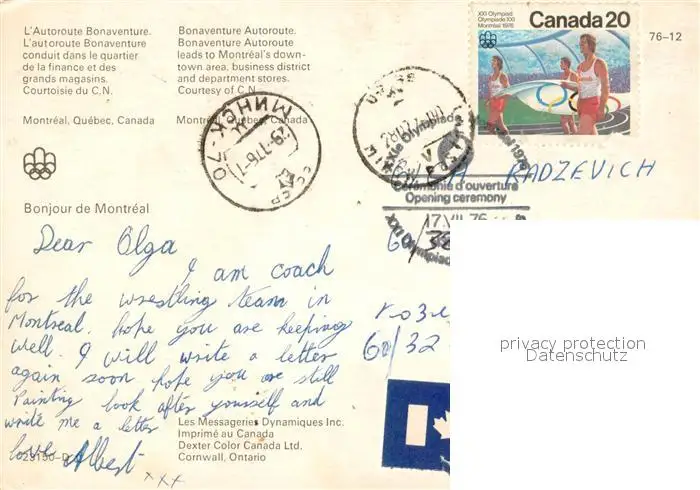 L'Autoroute Bonaventure.
L'autoroute Bonaventure
conduit dans le quartier
de la finance et des
grands magasins.
Courtoisie du C.N.
Montréal, Québec, Canada
Bonaventure Autoroute.
Bonaventure Autoroute
leads to Montréal's down-
town area, business district
and department stores.
Courtesy of C.N.
Montréal, Québec, Canada
XXI Olympiad
Olympiade XXI
Montréal 1976
Canada 20
76-12
МИНСК-70
RADZEVICH
Cérémonie d'ouverture
Opening ceremony
17.VII.76
60/32
Bonjour de Montréal
Dear Olga
I am coach
for the wrestling team in
Montreal. hope you are keeping
well. I will write a letter
again soon hope you are still
Painting look after yourself and
write me a letter
love Albert
xxx
Les Messageries Dynamiques Inc.
Imprimé au Canada
Dexter Color Canada Ltd.
Cornwall, Ontario
privacy protection
Datenschutz